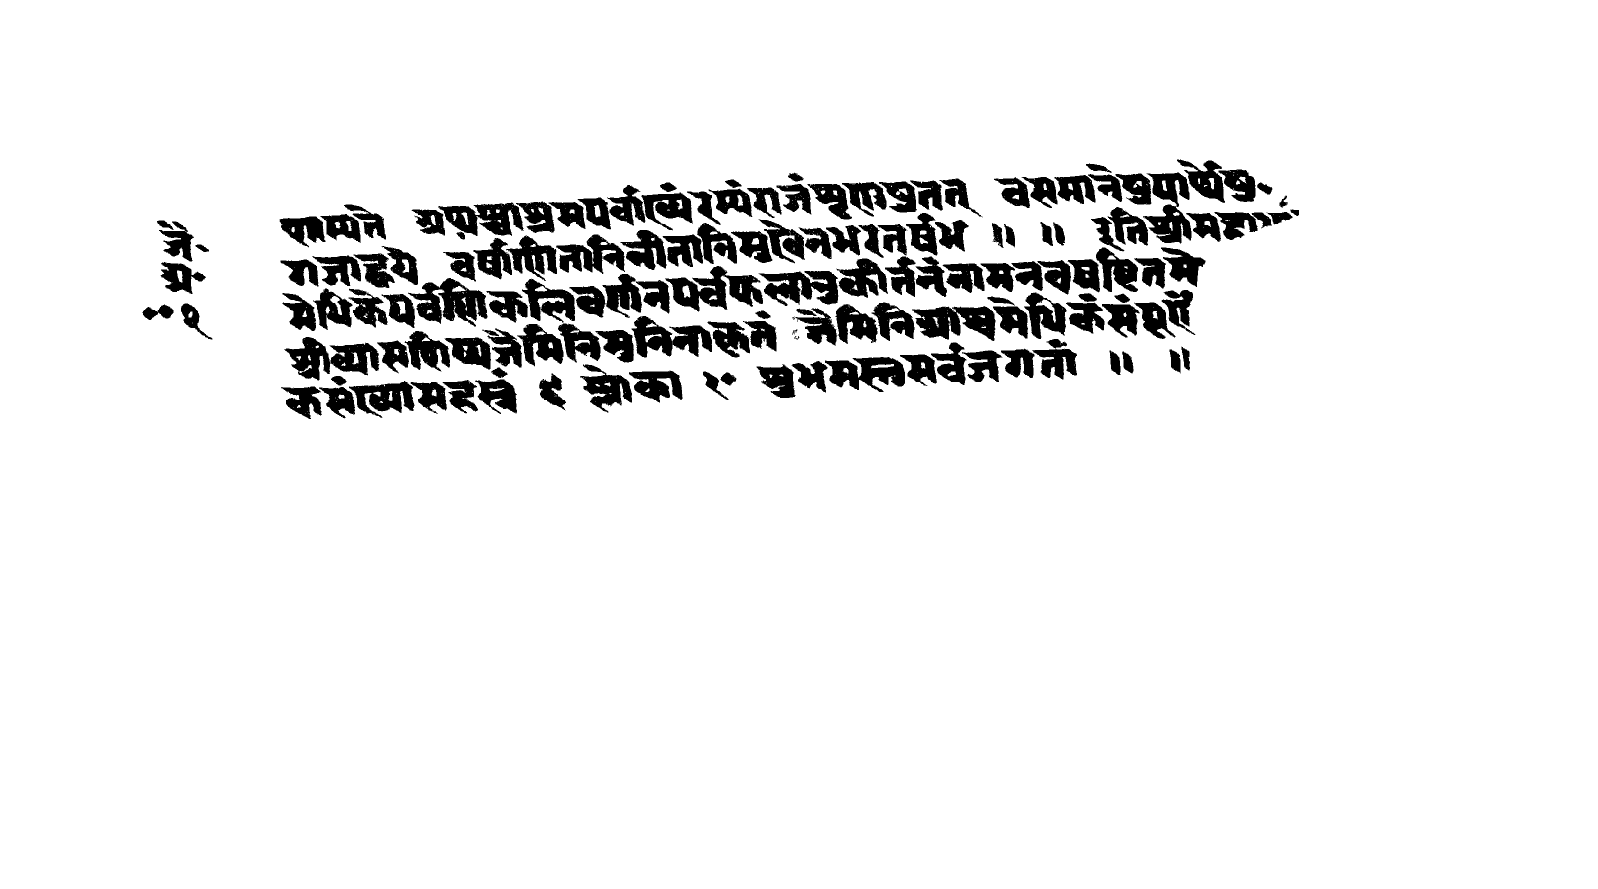 जै॰
अ॰
पत्नम्यत्ने अथ पश्चाश्रमपर्वाख्यं रम्यं राजं शृणुष्व तत् वसमानेषु पार्थेषु
राजाह्वये वर्षाणीतानि नीतानि सुखेन भरतर्षभ ॥ ॥ इति श्रीमहा
मेधिके पर्वणि कलिवर्णन पर्वफलानुकीर्तनं नाम नवषष्टितमो
श्रीव्यासशिष्य जैमिनिमुनिना कृतं जैमिनि आश्वमेधिकं संपूर्णं
कसंख्या सहस्त्रं ६ श्लोका २॰ शुभमस्तु सर्वजगतां ॥ ॥